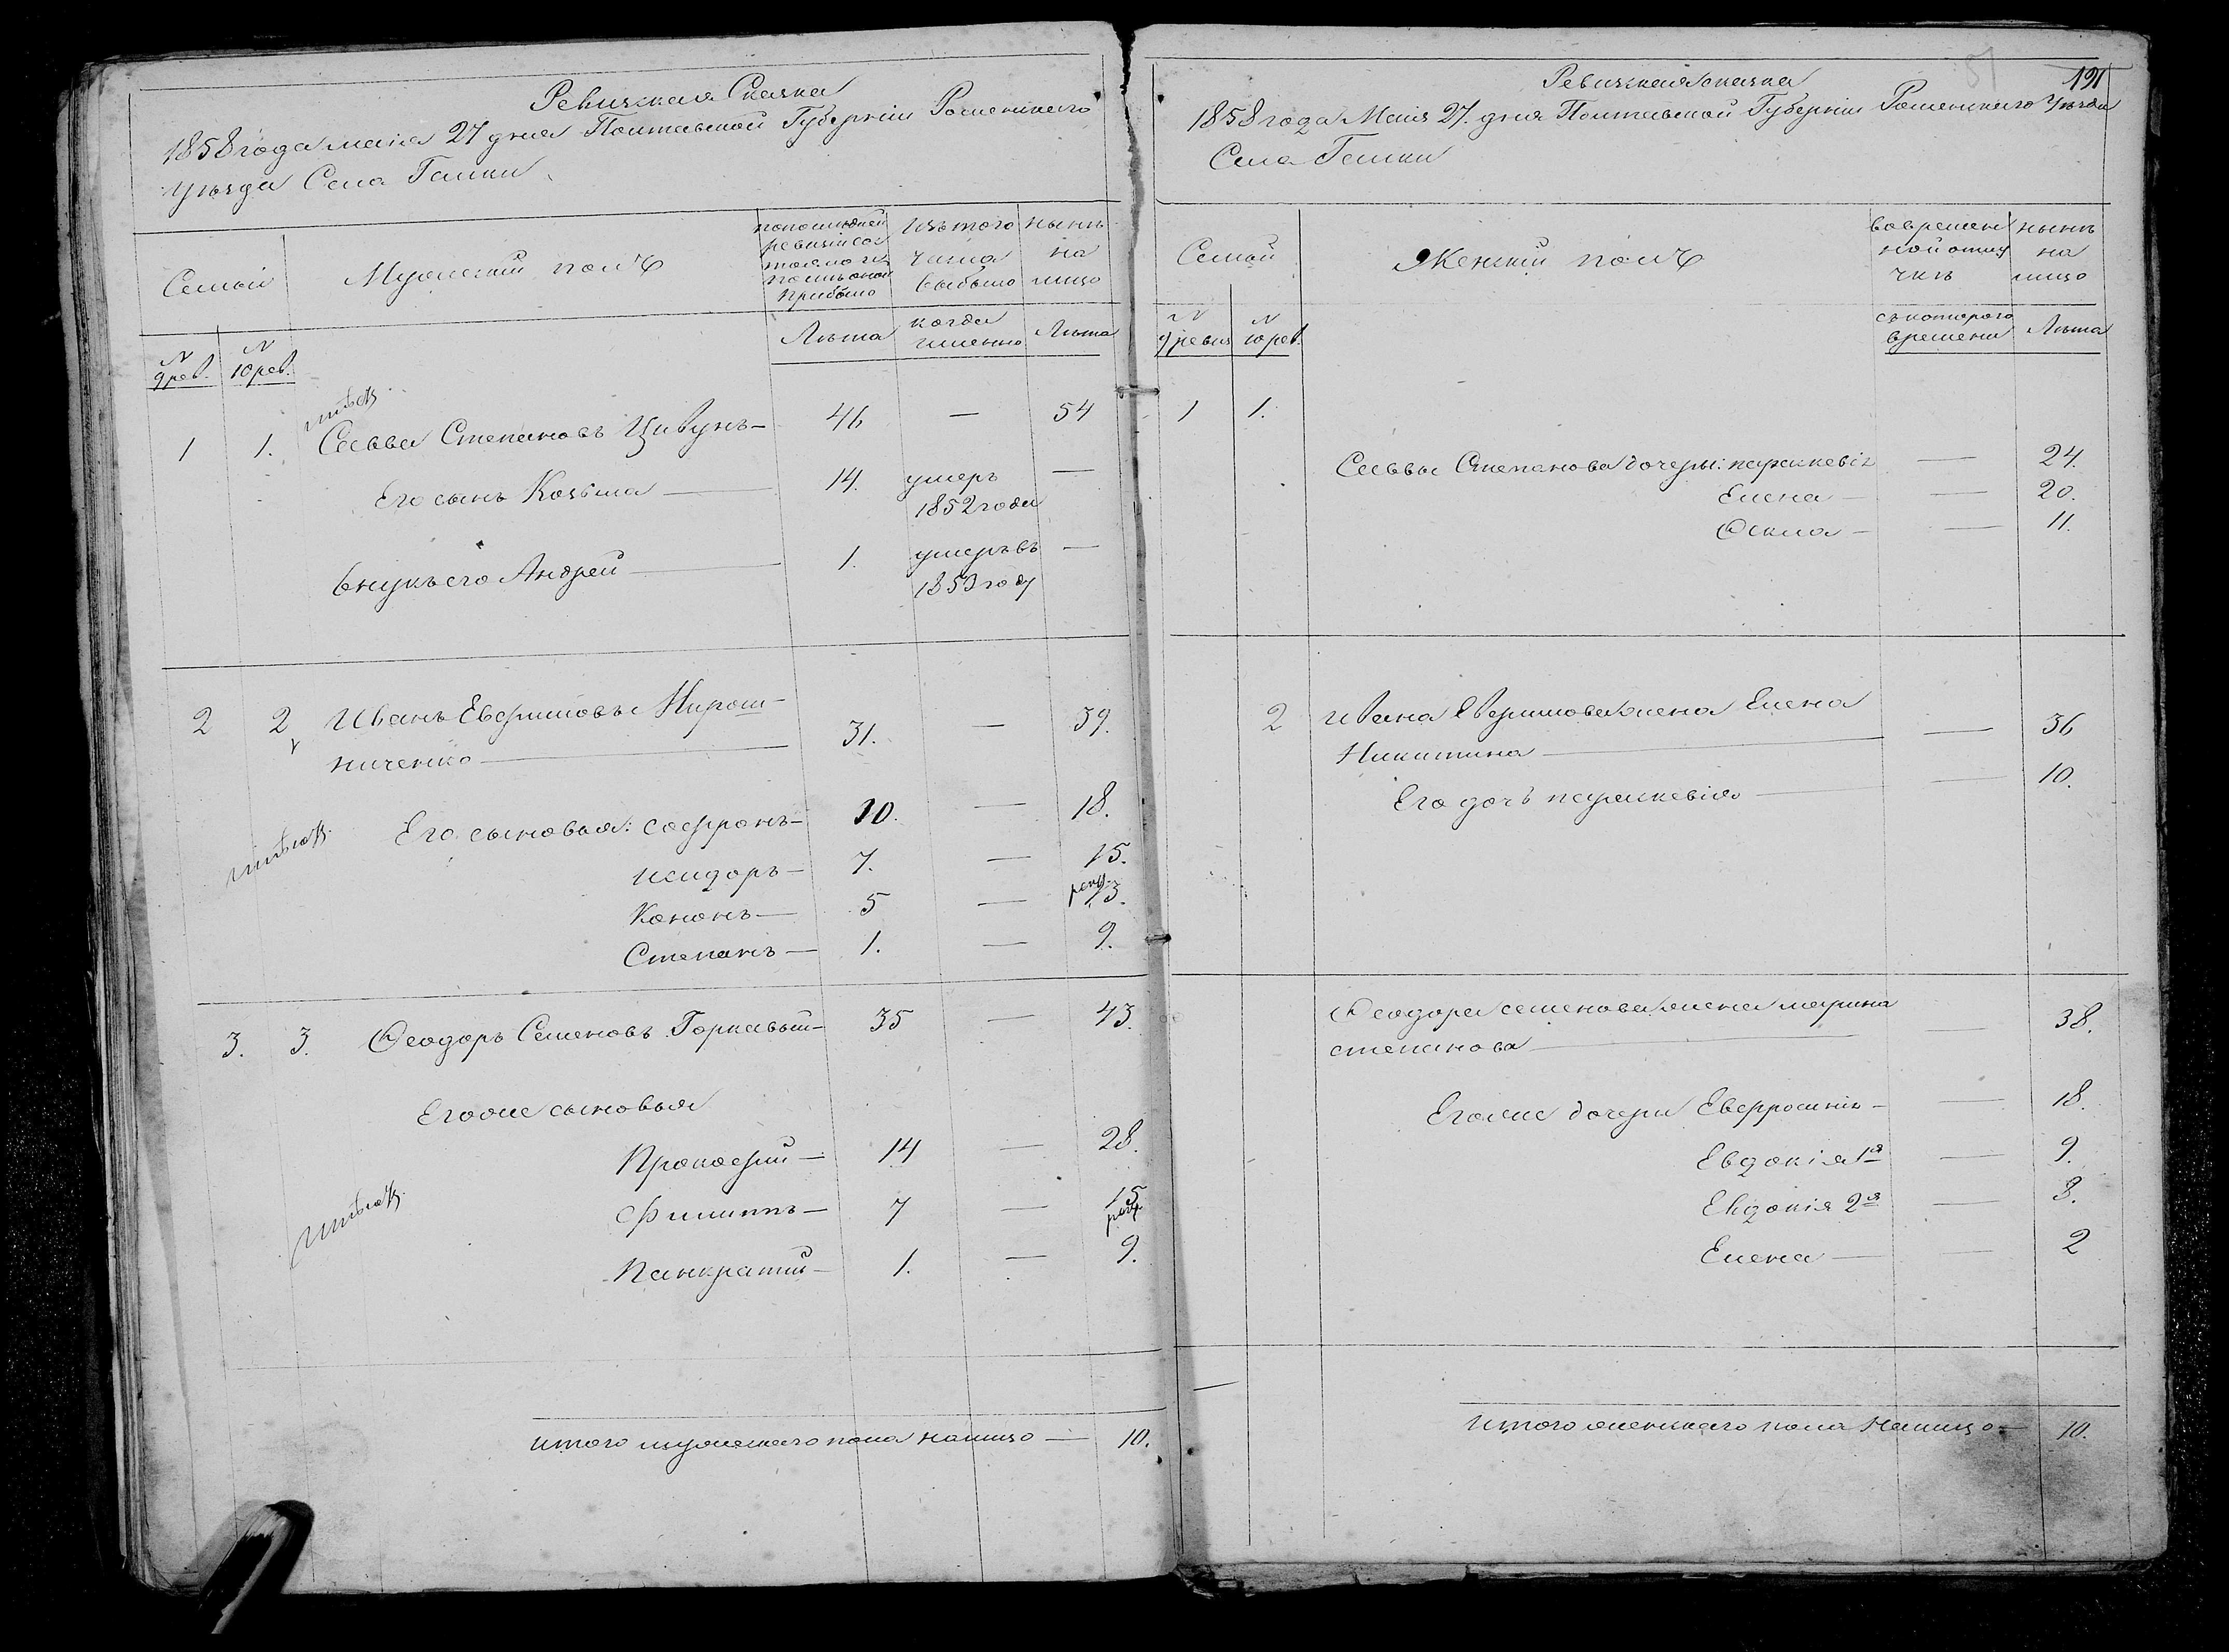 Ревизская Сказка
1858 года маія 27 дня Полтавской Губерніи Роменскаго
Уѣзда Села Галки
Семьи
Мужескій полъ
по последней
ревизіи со
стояло и
после оной
прибыло
Изъ того
числа
выбыло
ныне
на
лицо
№
9 рев.
№
10 рев.
Лѣта
когда
именно
Лѣта
1 1. Савва Степановъ Цивунъ — 46 — 54
Его сынъ Козьма — 14. умеръ —
1852 года
Внукъ его Андрей — 1. умеръ въ —
1853 году
2 2 Иванъ Евфимовъ Мирош-
ниченко — 31. — 39.
Его сыновья: Софронъ — 10. — 18.
Исидоръ — 7. — 15.
Кононъ — 5 — 13.
Степанъ — 1. — 9.
3. 3. Ѳеодоръ Семеновъ Горкавый — 35 — 43.
Его же сыновья
Прокофій — 14 — 28.
Филиппъ — 7 — 15
Панкратій — 1. — 9.
итого мужескаго пола налицо — 10.
51
191
Ревизская сказка
1858 года Маія 27. дня Полтавской Губерніи Роменскаго Уѣзда
Села Галки
Семьи
Женскій полъ
во времен
ной отлу
чкѣ
ныне
на
лицо
№
9 ревиз
№
10 рев.
съ котораго
времени
Лѣта
1 1.
Саввы Степанова дочеры: параскевія — 24.
Елена — 20.
Ѳекла — 11.
2 Ивана Евфимова жена Елена
Никитина — 36
Его дочь параскевія — 10.
Ѳеодора семенова жена марина
степанова — 38.
Его же дочери Евфросинія — 18.
Евдокія 1я — 9.
Евдокія 2я — 3.
Елена — 2
Итого женскаго пола Налицо — 10.